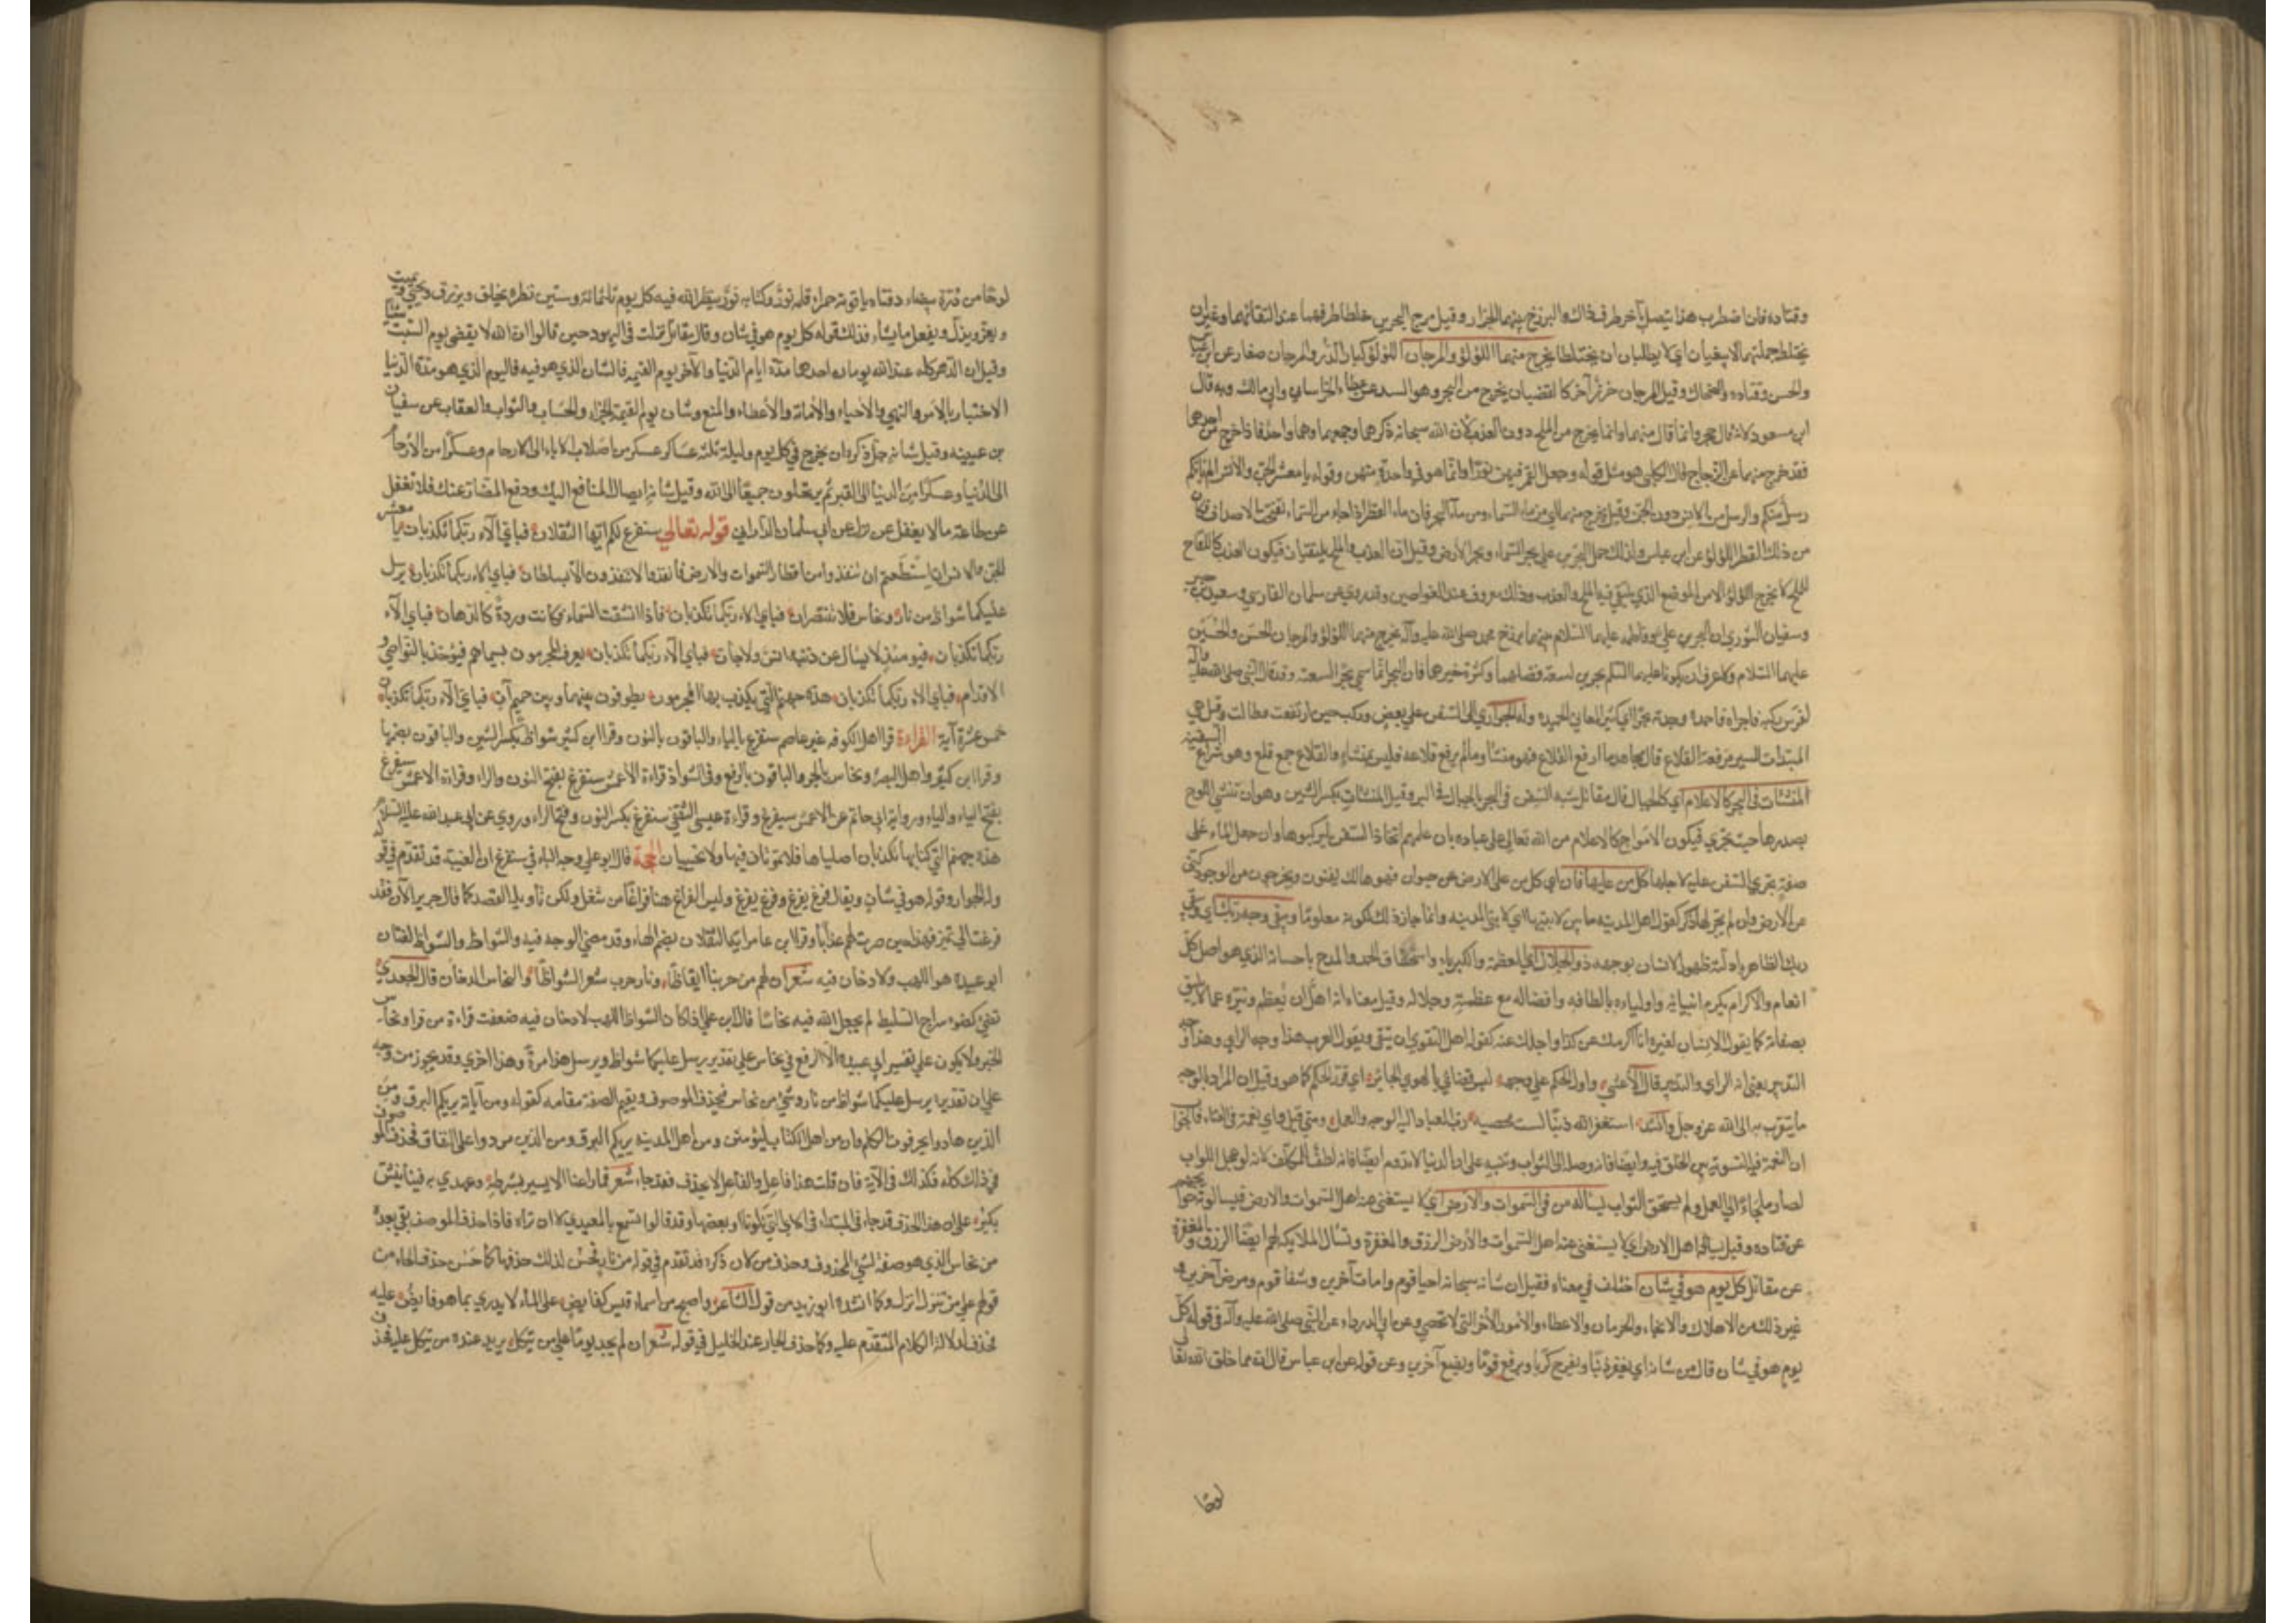 وقتاده فان اضطرب هذا يتصل بآخر طرف ذاك والبرزخ بينهما الجزاير وقيل مرج البحرين خلطا طرفيهما عند التقائهما من غير ان
يختلط جملتهما لا يبغيان اي لا يطلبان ان يختلطا يخرج منهما اللؤلؤ والمرجان اللؤلؤ كبار الدر والمرجان صغاره عن ابن عباس
والحسن وقتاده والضحاك وقيل المرجان خرز احمر كالقضبان يخرج من البحر وهو السد عن عطاء الخراساني وابي مالك وبه قال
ابن مسعود لانه قال حجر وانما قال منهما وانما يخرج من الملح دون العذب لان الله سبحانه ذكرهما وجمعهما وهما واحد فاذا خرج من احدهما
فقد خرج منهما عن الزجاج قال الكلبي وهو مثل قوله وجعل القمر فيهن نورا وانما هو في واحدة منهن وقوله يا معشر الجن والانس الم ياتكم
رسل منكم والرسل من الانس دون الجن وقيل يخرج منهما اي من ماء السماء ومن ماء البحر فان ماء القطر اذا جاء من السماء تفتحت الاصداف فكان
من ذلك القطر اللؤلؤ عن ابن عباس ولذلك حمل البحرين على بحر السماء وبحر الارض وقيل ان العذب والملح يلتقيان فيكون العذب كاللقاح
للملح ولا يخرج اللؤلؤ الا من الموضع الذي يلتقي فيه الملح والعذب وذلك معروف عند الغواصين وقد روي عن سلمان الفارسي وسعيد بن جبير
وسفيان الثوري ان البحرين علي وفاطمه عليهما السلام بينهما برزخ محمد صلى الله عليه وآله يخرج منهما اللؤلؤ والمرجان الحسن والحسين
عليهما السلام ولا غرو ان يكونا عليهما السلام بحرين لسعة فضلهما وكثرة خيرهما فان البحر انما سمي بحرا لسعته وقد قال النبي صلى الله عليه وآله
لفرس ركبه فاجراه فاحمده وجدته بحرا اي كثير المعاني الحميده وله الجواري اي السفن
المبتدات السير مرفوعة القلاع قال مجاهد ما رفع القلاع فهو منشأ وما لم يرفع قلاعه فليس بمنشاء والقلاع جمع قلع وهو شراع السفينة
المنشئات في البحر كالاعلام اي كالجبال قال مقاتل شبه السفن في البحر بالجبال في البر وقيل المنشئات بكسر الشين وهو ان تنشئ الموج
بصدرها حيث تجري فيكون الامواج كالاعلام من الله تعالى على عباده بان علمهم اتخاذ السفن ليركبوها وان جعل الماء على
صفة تجري السفن عليه لاجلها كل من عليها فان اي كل من على الارض من حيوان فهو هالك يفنون ويخرجون من الوجود كني
عن الارض وان لم يجر لها ذكر كقول اهل المدينة ما بين لابتيها اي لابتي المدينه وانما جاز ذلك لكونه معلوما ويبقى وجه ربك اي ويبقى
ربك الظاهر بادلته ظهور الانسان بوجهه ذو الجلال اي العظمة والكبرياء واستحقاق الحمد والمدح باحسانه الذي هو اصل كل
انعام والاكرام يكرم انبيائه واولياءه بالطافه وافضاله مع عظمته وجلاله وقيل معناه انه اهل ان يعظم وينزه عما لا يليق
بصفاته كما يقول الانسان لغيره انا اكرمك عن كذا واجلك عنه كقوله اهل التقوى ان يتقى ويقول العرب هذا وجه الراي وهذا وجه
التدبير بمعنى انه الراي والتدبير قال الاعشى واول الحكم على وجهه ليس قضائي بالهوى الجائر اي قرر الحكم كما هو وقيل ان المراد بالوجه
ما يتقرب به الى الله عز وجل وانشد استغفر الله ذنبا لست محصيه رب العباد اليه الوجه والعمل ومتى قيل واي نعمة في الفناء فالجواب
ان النعمة فيه التسوية بين الخلق فيه وايضا فانه وصلة الى الثواب وتنبيه على ان الدنيا لا تدوم وايضا فانه لطف للمكلف لانه لو عجل الثواب
لصار ملجاء الى العمل ولم يستحق الثواب يساله من في السموات والارض اي لا يستغني عنه اهل السموات والارض فيسالونه حوائجهم
عن قتاده وقيل يساله اهل الارض اي لا يستغني عنه اهل السموات والارض الرزق والمغفرة وتسال الملايكة لهم ايضا الرزق والمغفرة
عن مقاتل كل يوم هو في شان اختلف في معناه فقيل ان شانه سبحانه احيا قوم وامات آخرين وشفا قوم ومرض آخرين و
غير ذلك من الاهلاك والانجاء والحرمان والاعطاء والامور الأخر التي لا تحصى وعن ابي الدرداء عن النبي صلى الله عليه وآله في قوله كل
يوم هو في شان قال من شانه ان يغفر ذنبا ويفرج كربا ويرفع قوما ويضع آخرين وعن قوله عن ابن عباس قال انه مما خلق الله تعالى
لوحا
لوحا من درة بيضاء دفتاه ياقوتة حمراء قلمه نور وكتابه نور ينظر الله فيه كل يوم ثلثمائة وستين نظرة يخلق ويرزق ويحيي ويميت
ويعز ويذل ويفعل ما يشاء فذلك قوله كل يوم هو في شان وقال مقاتل نزلت في اليهود حين قالوا ان الله لا يقضي يوم السبت شيئا
وقيل ان الدهر كله عند الله يومان احدهما مدة ايام الدنيا والآخر يوم القيمة فالشان الذي هو فيه في اليوم الذي هو مدة الدنيا
الاختبار بالامر والنهي والاحياء والاماتة والاعطاء والمنع وشان يوم القيمة الجزاء والحساب والثواب والعقاب عن سفيان
بن عيينه وقيل شانه جل ذكره ان يخرج في كل يوم وليلة ثلثه عساكر عسكر من اصلاب الاباء الى الارحام وعسكرا من الارحام
الى الدنيا وعسكرا من الدنيا الى القبر ثم يرتحلون جميعا الى الله وقيل شانه ايصال المنافع اليك ودفع المضار عنك فلا تغفل
عن طاعة من لا يغفل عن برك عن ابي سلمان الداراني قوله تعالى سنفرغ لكم ايها الثقلان فباي آلاء ربكما تكذبان يا معشر
الجن والانس ان استطعتم ان تنفذوا من اقطار السموات والارض فانفذوا لا تنفذون الا بسلطان فباي الاء ربكما تكذبان يرسل
عليكما شواظ من نار ونحاس فلا تنتصران فباي الاء ربكما تكذبان فاذا انشقت السماء فكانت وردة كالدهان فباي آلاء
ربكما تكذبان فيومئذ لا يسال عن ذنبه انس ولا جان فباي آلاء ربكما تكذبان يعرف المجرمون بسيماهم فيؤخذ بالنواصي و
الاقدام فباي الاء ربكما تكذبان هذه جهنم التي يكذب بها المجرمون يطوفون بينها وبين حميم آن فباي آلاء ربكما تكذبان
خمس عشرة آية القراءة قرا اهل الكوفه غير عاصم سيفرغ بالياء والباقون بالنون وقرا ابن كثير شواظ بكسر الشين والباقون بضمها
وقرا ابن كثير واهل البصرة ونحاس بالجر والباقون بالرفع وفي الشواذ قراءة الاعمش سنفرغ بفتح النون والراء وقراءة الاعمش سيفرغ
بفتح الياء والراء ورواية ابي حاتم عن الاعمش سيفرغ وقراءة عيسى الثقفي سنفرغ بكسر النون وفتح الراء وروي عن ابي عبد الله عليه السلام
هذه جهنم التي كنتما بها تكذبان اصلياها فلا تموتان فيها ولا تحييان الحجة قال ابو علي وجه الياء في سيفرغ ان الغيبة قد تقدم في قوله
وله الجوار وقوله هو في شان ويقال فرغ يفرغ وفرغ يفرغ وليس الفراغ هنا فراغا من شغل ولكن تاويله القصد كما قال جرير الآن فقد
فرغت الى نمير فهذا حين صرت لهم عذابا وقرا ابن عامر ايه الثقلان بضم الهاء وقد مضى الوجه فيه والشواظ والشواظ لغتان
ابو عبيدة هو اللهب ولا دخان فيه شعر ان لهم من حربنا ايقاظا ونار حرب تسعر الشواظا والنحاس الدخان قال الجعدي
تضئ كضوء سراج السليط لم يجعل الله فيه نحاسا قال ابو علي فاذا كان الشواظ اللهب لا دخان فيه ضعفت قراءة من قرا ونحاس
بالجر ولا يكون على تفسير ابي عبيدة الا الرفع في نحاس على تقدير يرسل عليكما شواظ ويرسل هذا مرة وهذا اخرى وقد يجوز من وجه
على ان تقديره يرسل عليكما شواظ من نار وشئ من نحاس فيحذف الموصوف ويقيم الصفة مقامه كقوله ومن آياته يريكم البرق ومن
الذين هادوا يحرفون الكلم وان من اهل الكتاب الا ليؤمنن ومن اهل المدينة يريكم البرق ومن الذين مردوا على النفاق فحذف الموصوف
في ذلك كله فكذلك في الآية فان قلت هذا فاعل والفاعل لا يحذف فقد جاء شعر فما راعنا الا يسير بشرطة وعهدي به فينا يفش
بكير على ان هذا الحذف قد جاء في المبتداء في الآي التي تلوناها وبعضها وقد قالوا تسمع بالمعيدي لا ان تراه فاذا حذف الموصوف بقي بعده
من نحاس الذي هو صفة لشئ المحذوف وحذف من لان ذكره قد تقدم في قوله من نار فحسن لذلك حذفها كما حسن حذف الجار من
قولهم على من تنزل انزل وكما انشده ابو زيد من قول الشاعر واصبح من اسماء قيس كقابض على الماء لا يدري بما هو قابض عليه
فحذف لدلالة الكلام المتقدم عليه وكما حذف الجار عند الخليل في قوله شعر ان لم يجد يوما على من يتكل يريد عنده من يتكل عليه فحذف